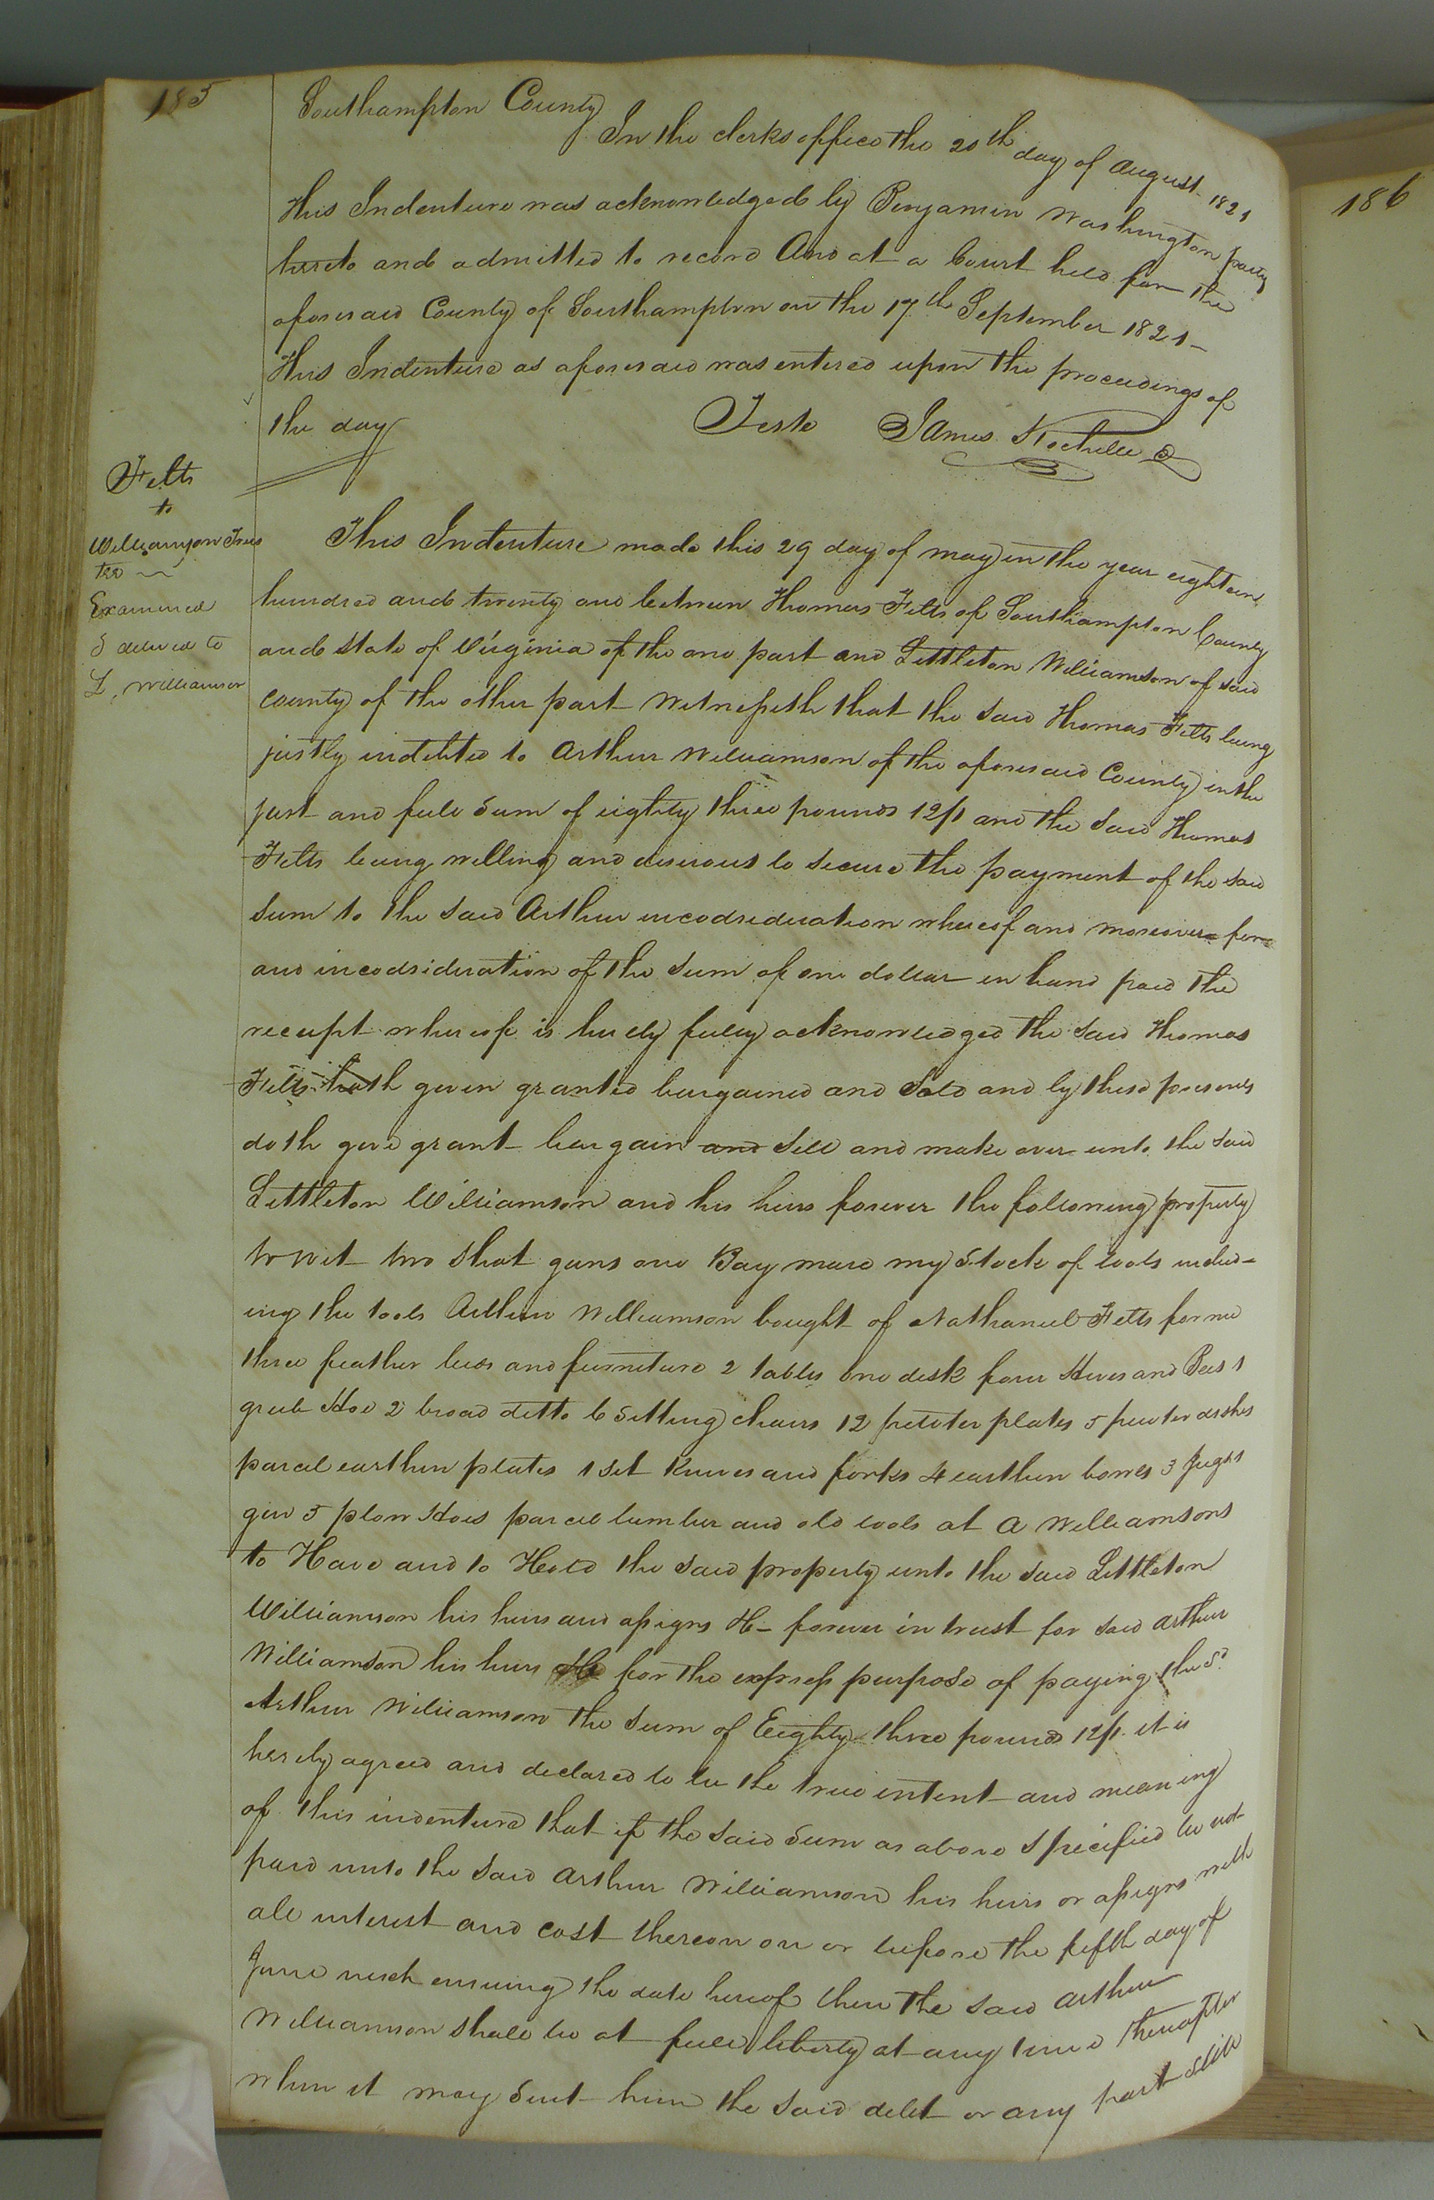 185
186
Southampton County
In the clerks office the 20th day of August 1821
This Indenture was acknowledged by Benjamin Washington party
hereto and admitted to record And at a Court held for the
aforesaid County of Southampton on the 17th September 1821 -
This Indenture as aforesaid was entered upon the proceedings of
the day
Teste James Rochelle C
Felts
to
Williamson Trus
tee
Examined
& delivred to
L. Williamson
This Indenture made this 29 day of may in the year eighteen
hundred and twenty one between Thomas Felts of Southampton County
and State of Virginia of the one part and Littleton Williamson of said
County of the other part Witnesseth that the said Thomas Felts being
justly indebted to Arthur Williamson of the aforesaid County in the
just and full Sum of eighty three pounds 12/1 and the said Thomas
Felts being willing and desirous to secure the payment of the said
sum to the said Arthur incodsideration whereof and moreover for
and incodsideration of the sum of one dollar in hand paid the
receipt whereof is hereby fully acknowledged the said Thomas
Felts hath given granted bargained and Sold and by these presents
doth give grant bargain and sell and make over unto the said
Littleton Williamson and his heirs forever the following property
to wit two shot guns one Bay mare my Stock of tools includ-
ing the tools Arthur Williamson bought of Nathaniel Felts for me
three feather beds and furniture 2 tables one desk four Hives and Bees 1
grub Hoe 2 broad ditto 6 Sitting chairs 12 pewter plates 5 pewter dishes
parcel earthen plates 1 set Knives and forks 4 earthen bowes 3 Jugs 1
5 plow Hoes parcel lumber and old tools at A Williamsons
to Have and to Hold the said property unto the said Littleton
Williamson his heirs and assigns &c - forever in trust for said Arthur
Williamson his heirs &c for the express purpose of paying the sd
Arthur Williamson the sum of Eighty three pounds 12/1. it is
hereby agreed and declared to be the true intent and meaning
of this indenture that if the said Sum as above specified be not
paid unto the said Arthur Williamson his heirs or assigns with
all interest and cost thereon on or before the fifth day of
June next ensuing the date hereof then the said Arthur
Williamson shall be at full liberty at any time thereafter
when it may suit him the said debt or any part still